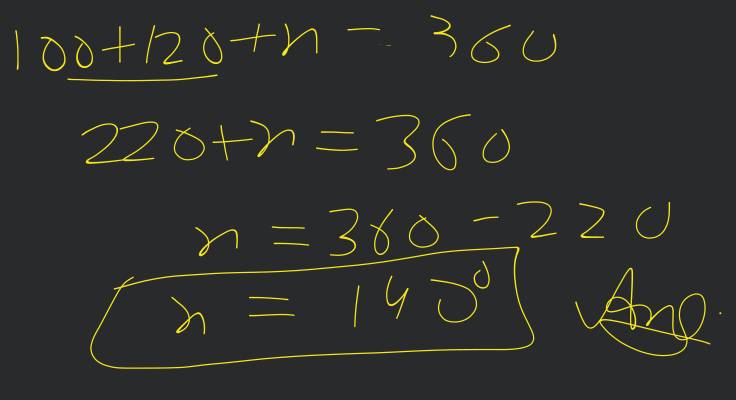 100+120+x = 360
220+x = 360
x = 360 - 220
x = 140° Ans.